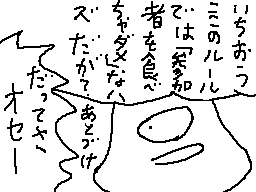 いちおうっ
ここのルール
では「参加
者を食べ
ちゃダメ」な
ズだがて
あとづけ
だってさ
オセー